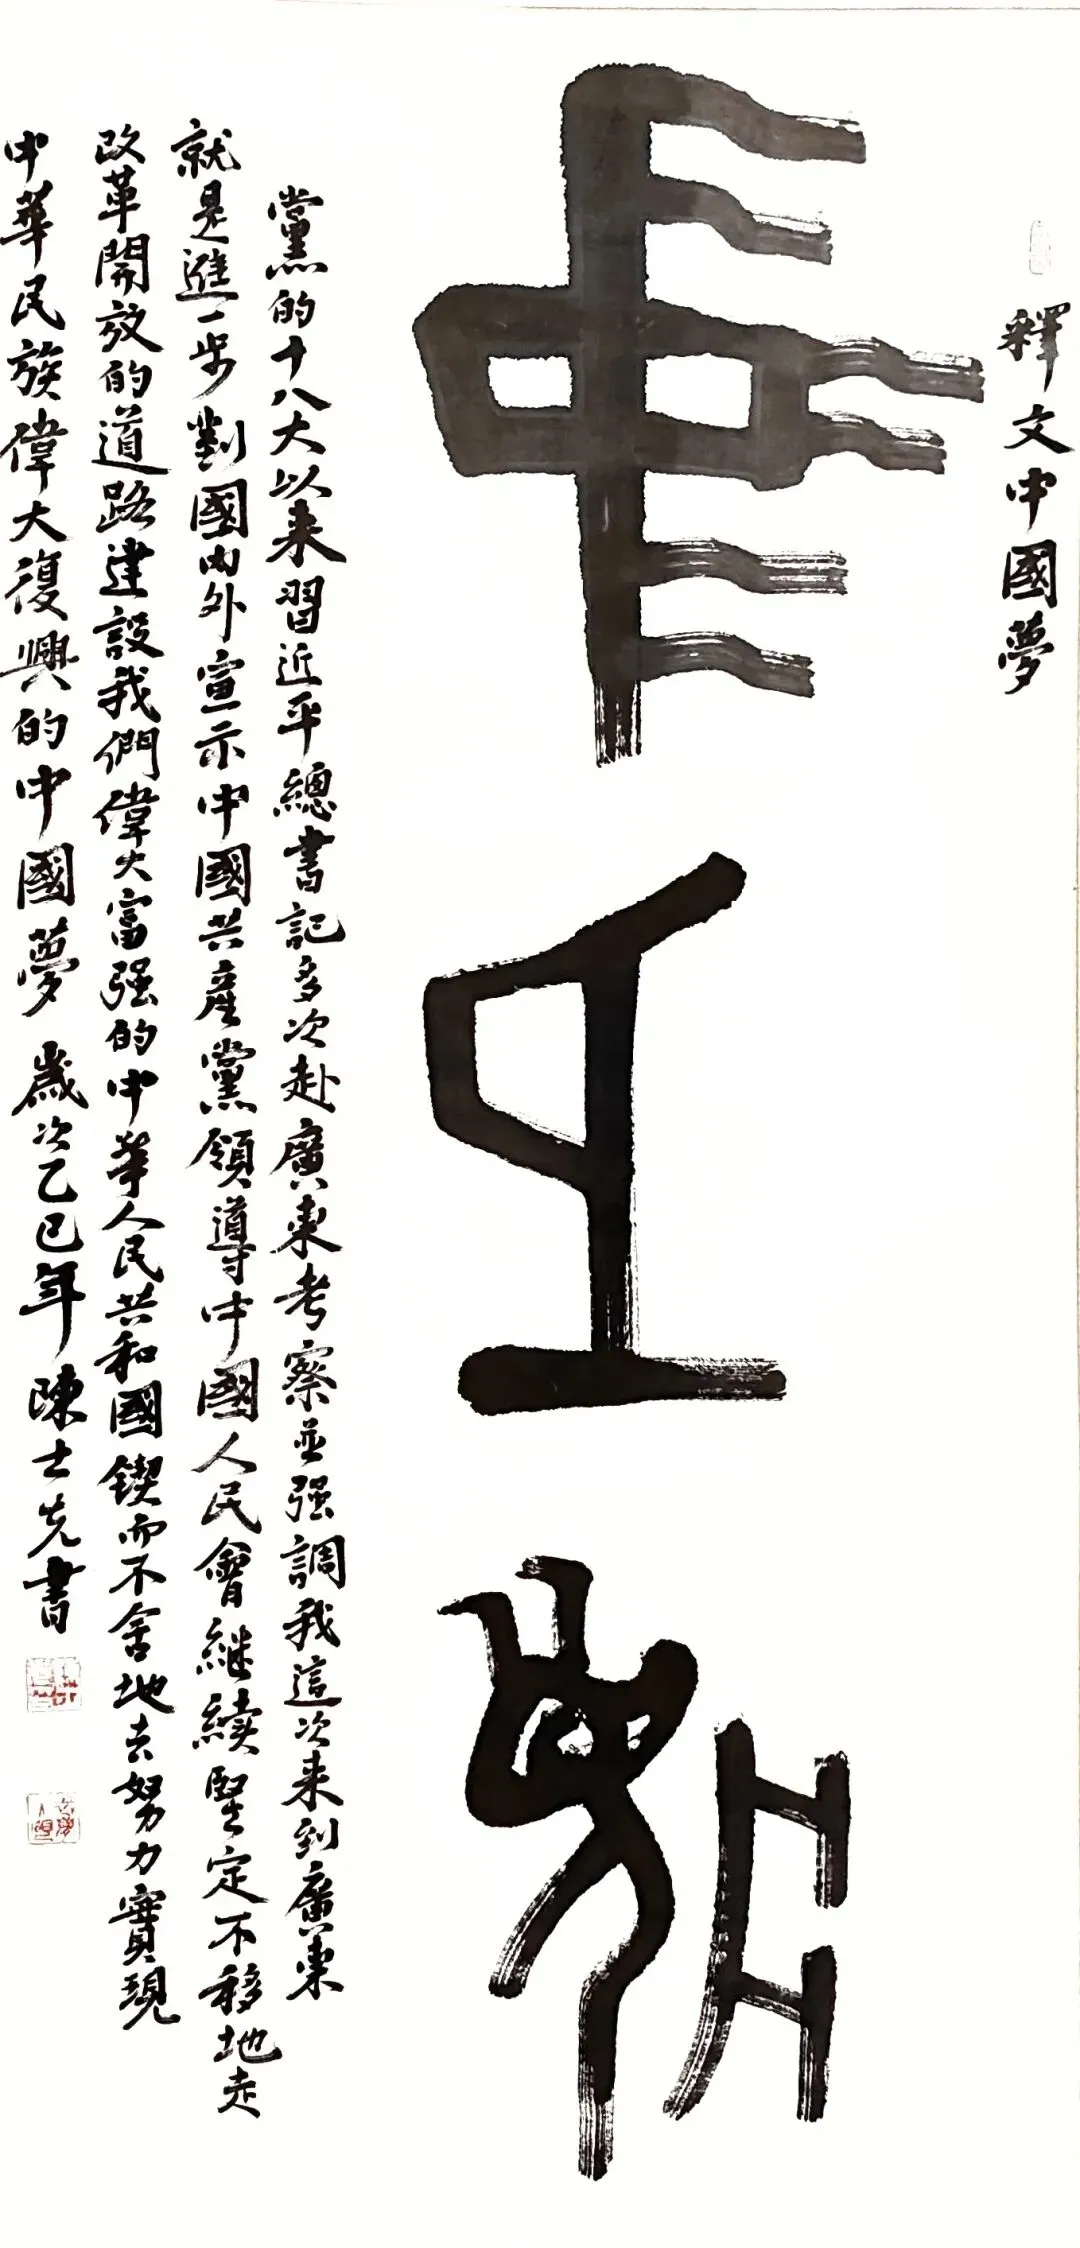 釋文中國夢
中國夢
黨的十八大以来習近平總書記多次赴廣東考察並强調我這次来到廣東
就是進一步對國内外宣示中國共産黨領導中國人民會継續堅定不移地走
改革開放的道路建設我們偉大富强的中華人民共和國鍥而不舍地去努力實現
中華民族偉大復興的中國夢 歲次乙巳年陳士先書